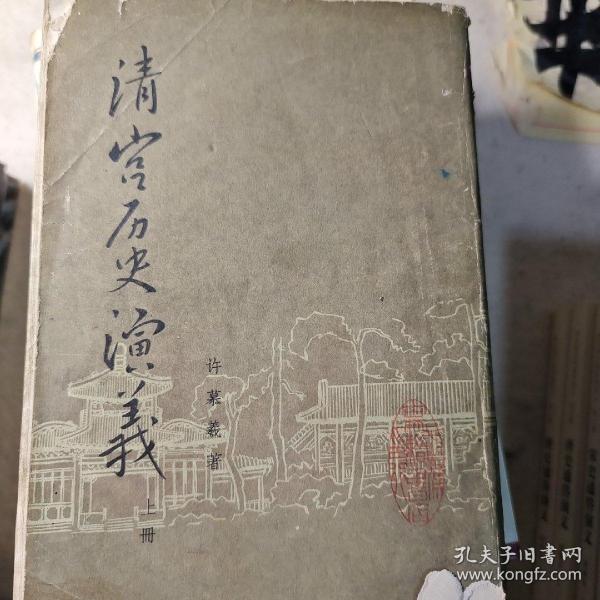 清宫历史演義
上冊
许慕羲著
孔夫子旧书网
www.kongfz.com